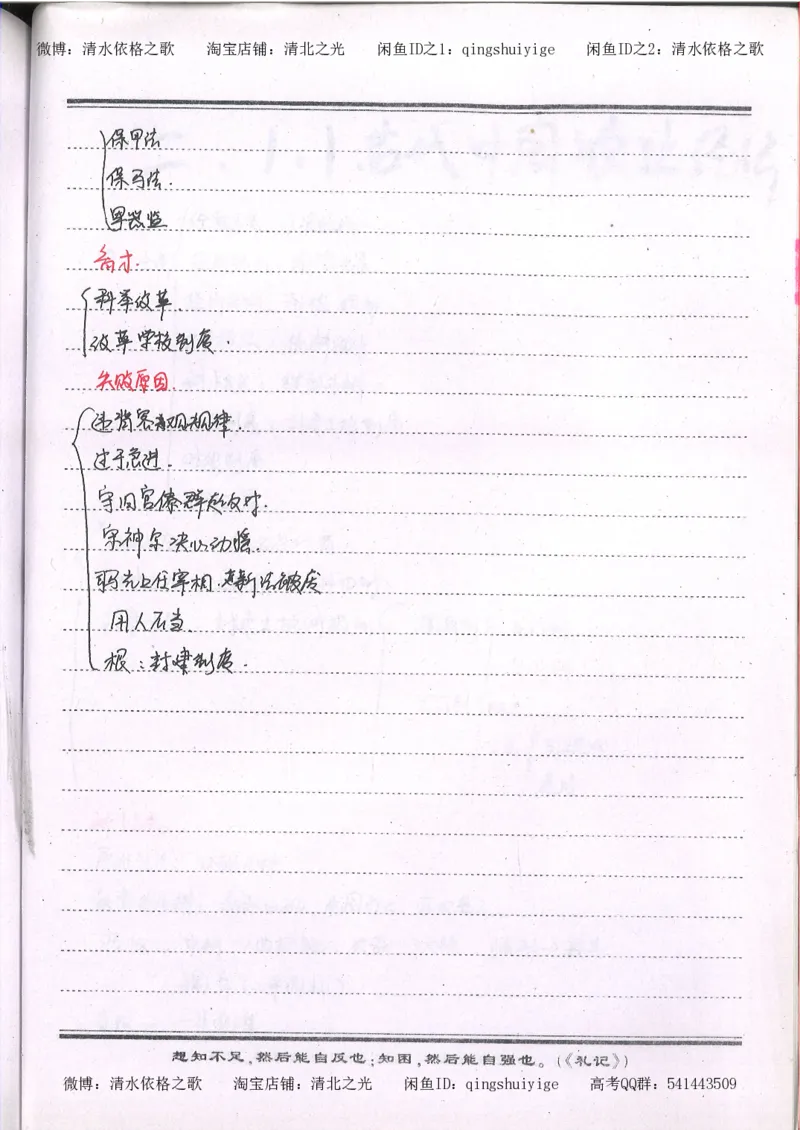 微博：清水依格之歌 淘宝店铺：清北之光 闲鱼ID之1：qingshuiyige 闲鱼ID之2：清水依格之歌
保甲法
保马法.
军器监
育才.
科举改革.
改革学校制度.
失败原因.
违背客观规律.
过于急进.
守旧官僚群起反对.
宋神宗决心动摇.
司马光上任宰相,新法被废
用人不当.
根：封建制度.
想知不足,然后能自反也;知困,然后能自强也。(《礼记》)
微博：清水依格之歌 淘宝店铺：清北之光 闲鱼ID：qingshuiyige 高考QQ群：541443509